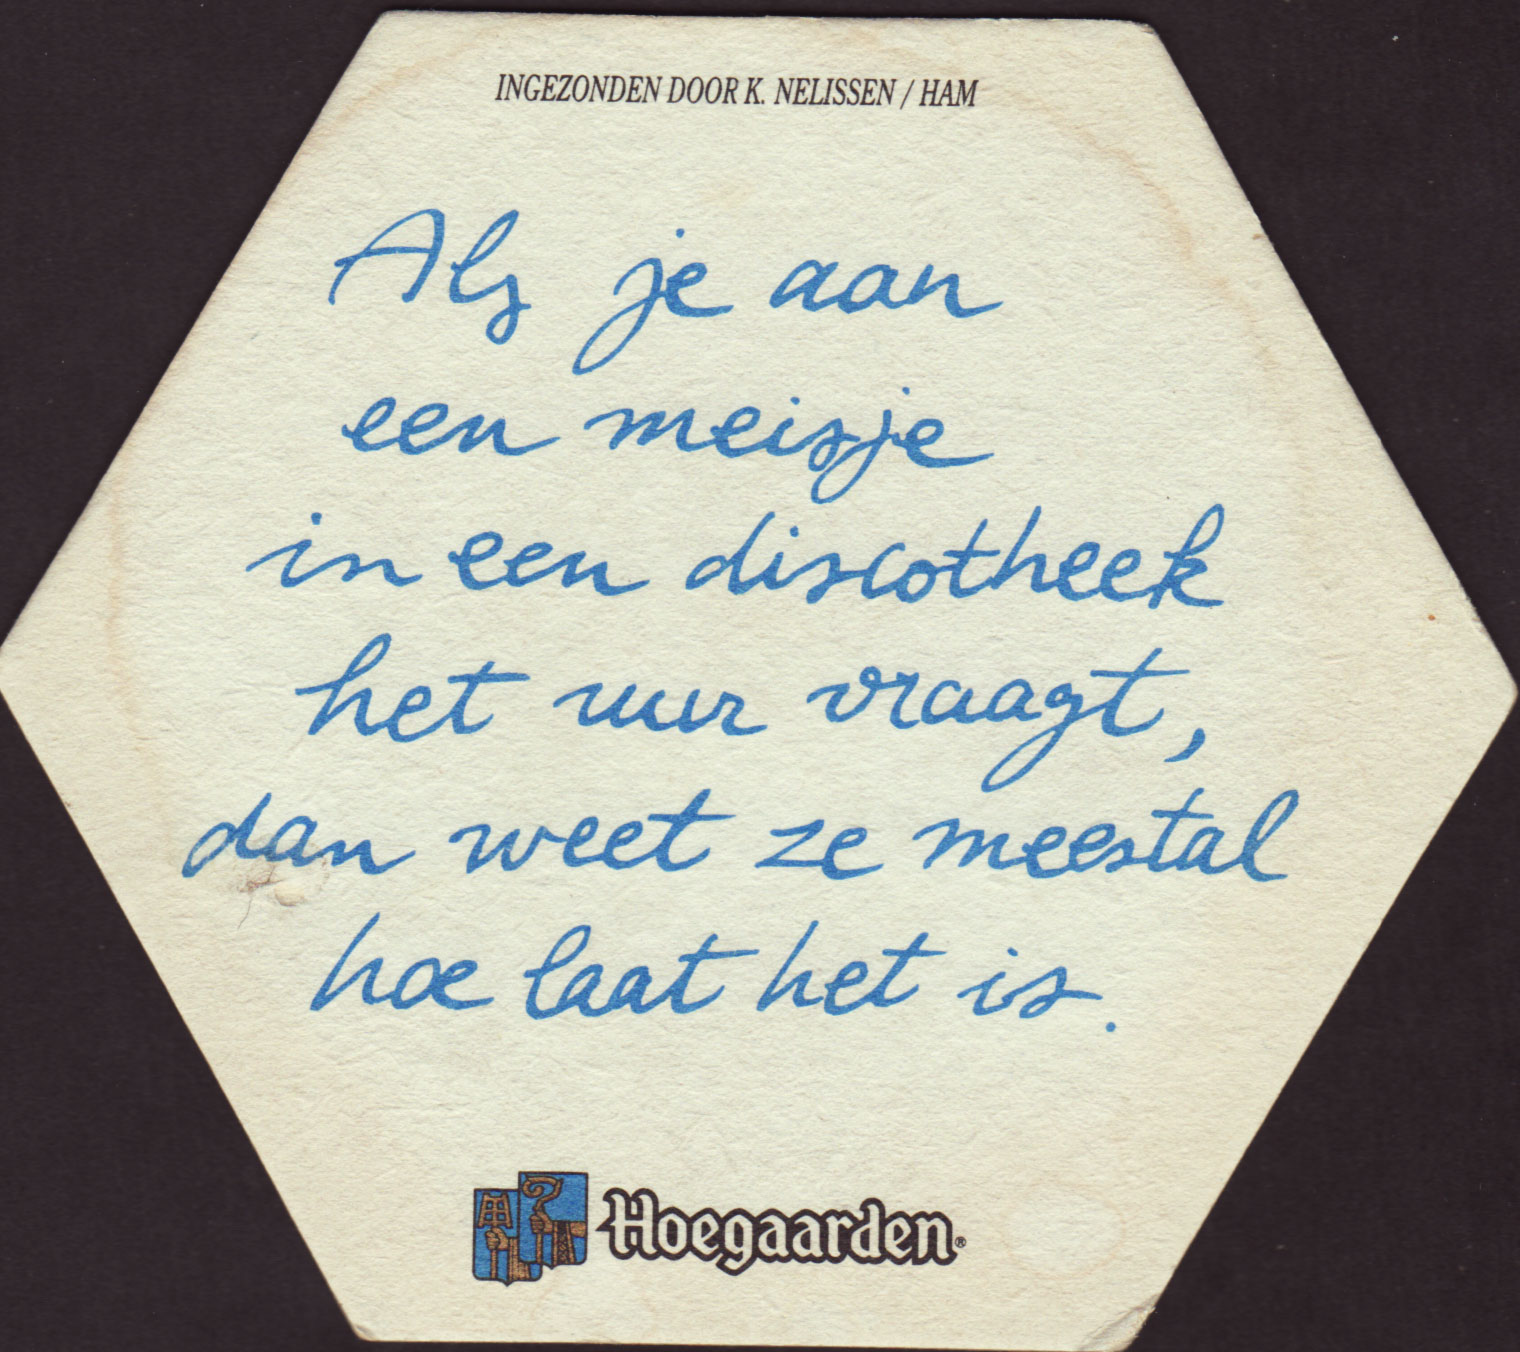 INGEZONDEN DOOR K. NELISSEN / HAM
Als je aan
een meisje
in een discotheek
het uur vraagt,
dan weet ze meestal
hoe laat het is.
Hoegaarden®